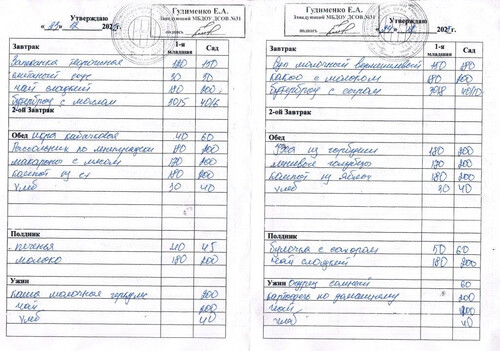 Гудименко Е.А.
Утверждаю
Заведующий МБДОУ ДСОВ №31
подпись
Завтрак
1-я младшая
Сад
Запеканка творожная 120 150
соус 30 30
чай сладкий 180 200
бутерброд с маслом 30/5 40/6
2-ой Завтрак
Обед икра кабачковая 40 60
Рассольник по ленинградски 180 200
макароны с мясом 170 200
компот из с/ф 180 200
хлеб 30 40
Полдник
печенье 45
молоко 180 200
Ужин
каша молочная геркулес 200
чай 200
хлеб 40
Гудименко Е.А.
Утверждаю
Заведующий МБДОУ ДСОВ №31
подпись
Завтрак
1-я младшая
Сад
Суп молочный вермишелевый 150 180
какао с молоком 180 200
бутерброд с сыром
2-ой Завтрак
Обед
Уха из горбуши 180 200
ленивые голубцы 170 200
компот из яблок 180 200
хлеб 30 40
Полдник
булочка с сахаром 50 60
чай сладкий 180 200
Ужин Огурец соленый 60
картофель по домашнему 200
чай 200
хлеб 40